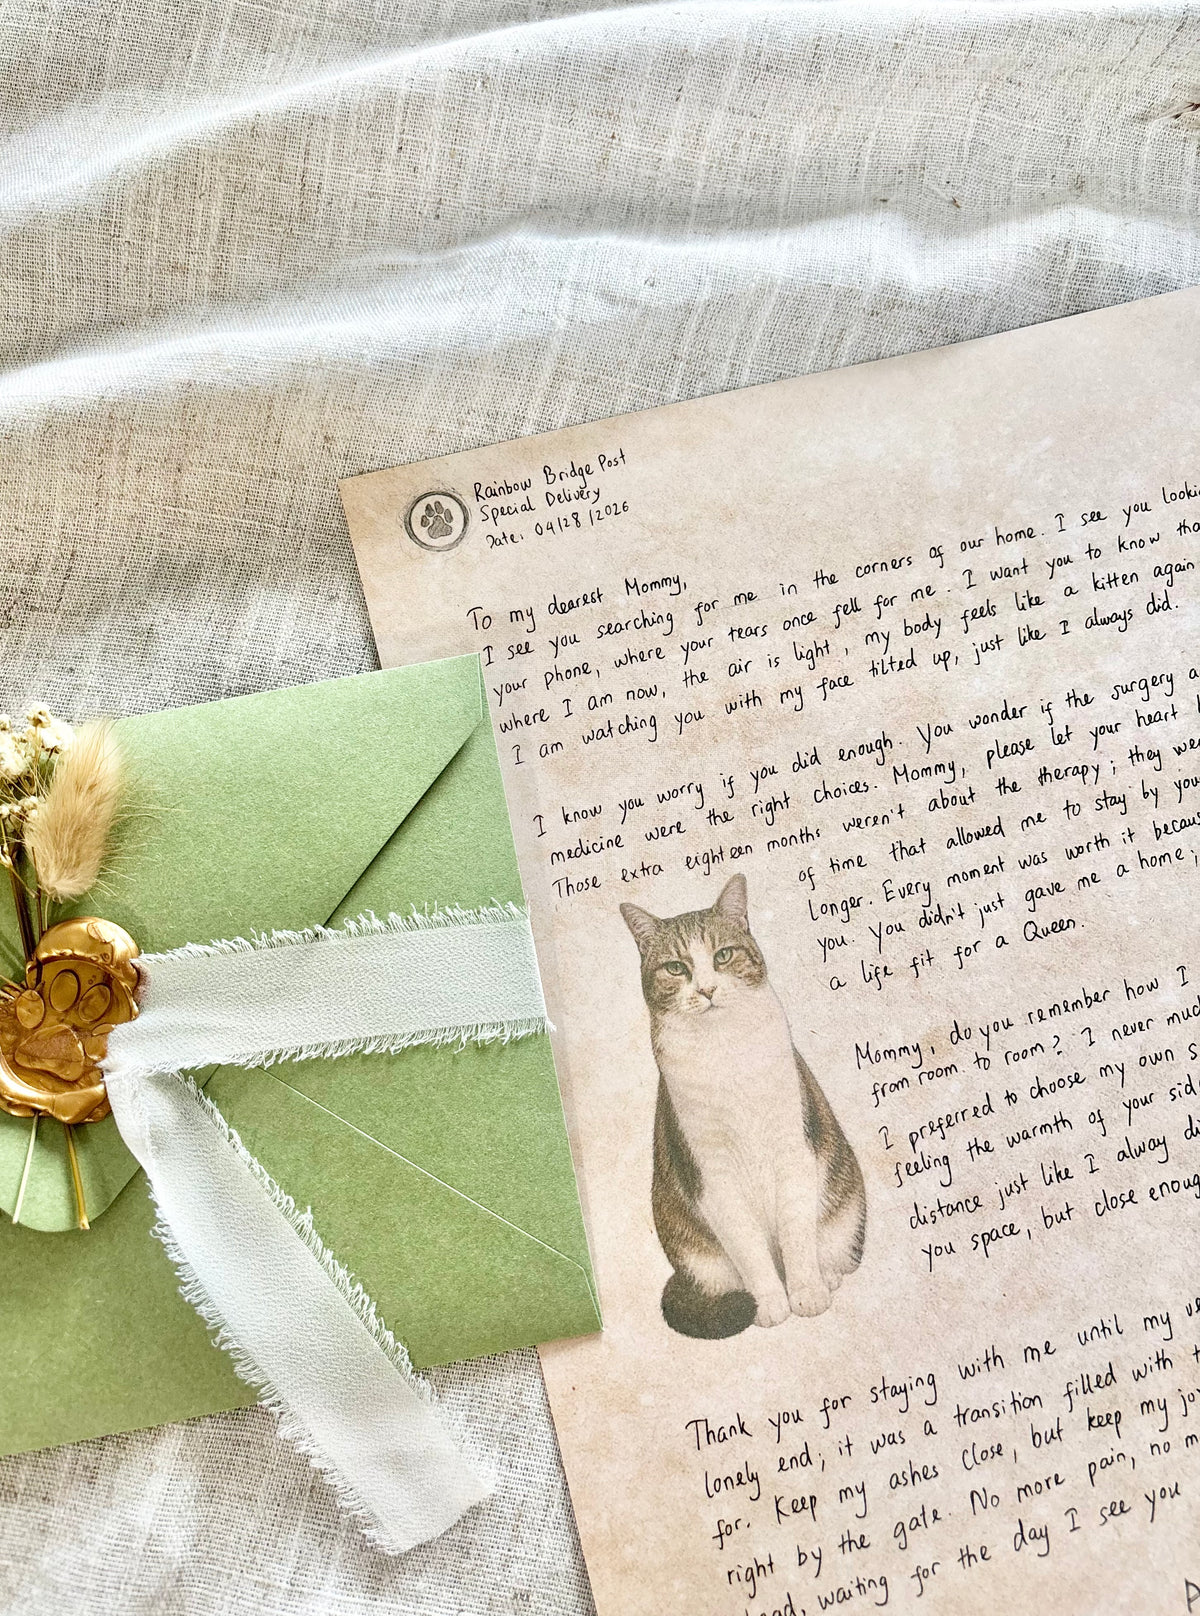 Rainbow Bridge Post
Special Delivery
Date: 04/28/2026
To my dearest Mommy,
I see you searching for me in the corners of our home. I see you
your phone, where your tears once fell for me. I want you to know
where I am now, the air is light, my body feels like a kitten again
I am watching you with my face tilted up, just like I always did.
I know you worry if you did enough. You wonder if the surgery
medicine were the right choices. Mommy, please let your heart
Those extra eighteen months weren't about the therapy; they
of time that allowed me to stay by
longer. Every moment was worth it
you. You didn't just gave me a home;
a life fit for a Queen.
Mommy, do you remember how I
from room to room? I never
I preferred to choose my own
feeling the warmth of your
distance just like I alway
you space, but close
Thank you for staying with me until my
lonely end; it was a transition filled with
for. Keep my ashes close, but keep my
right by the gate. No more pain, no
waiting for the day I see you